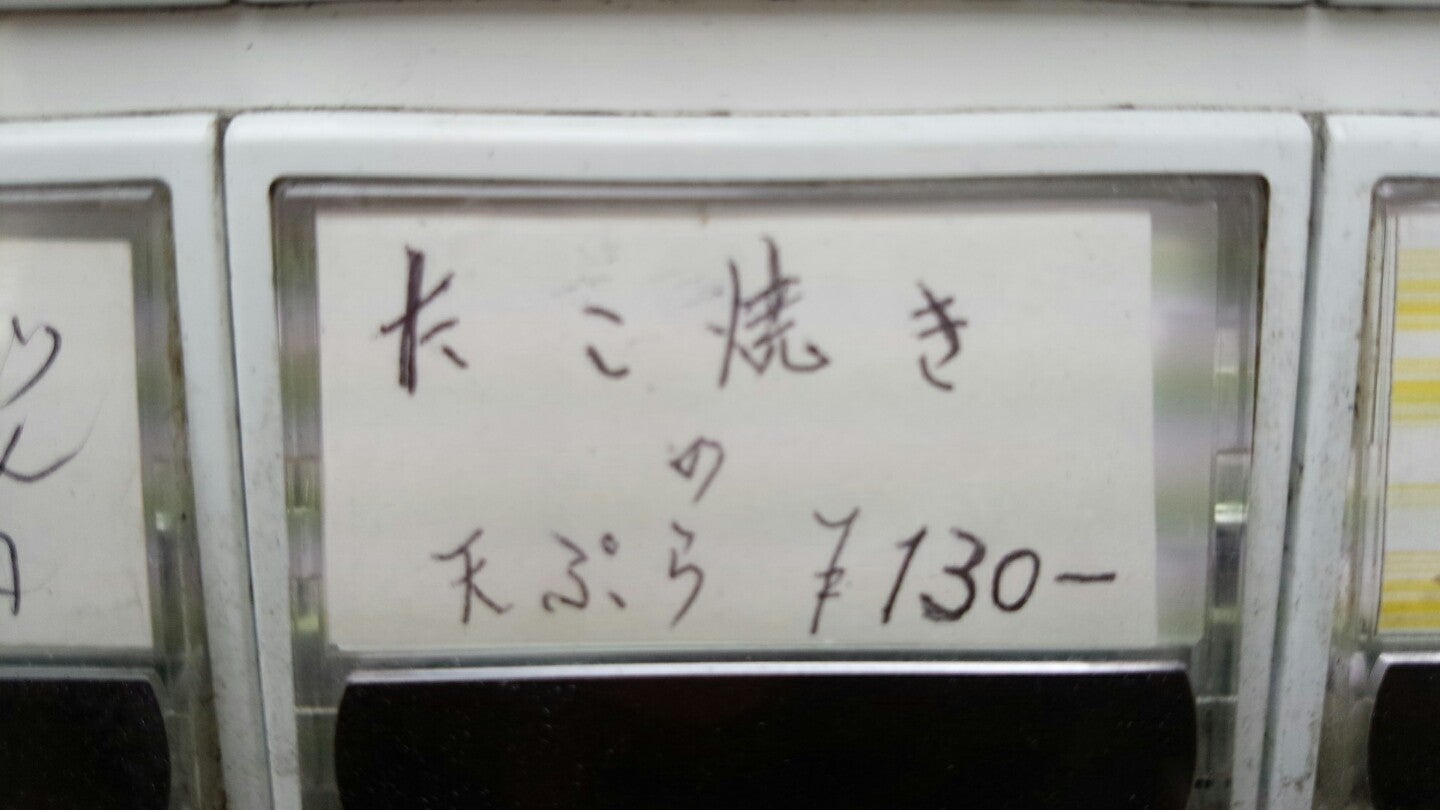 たこ焼き
の
天ぷら ¥130-